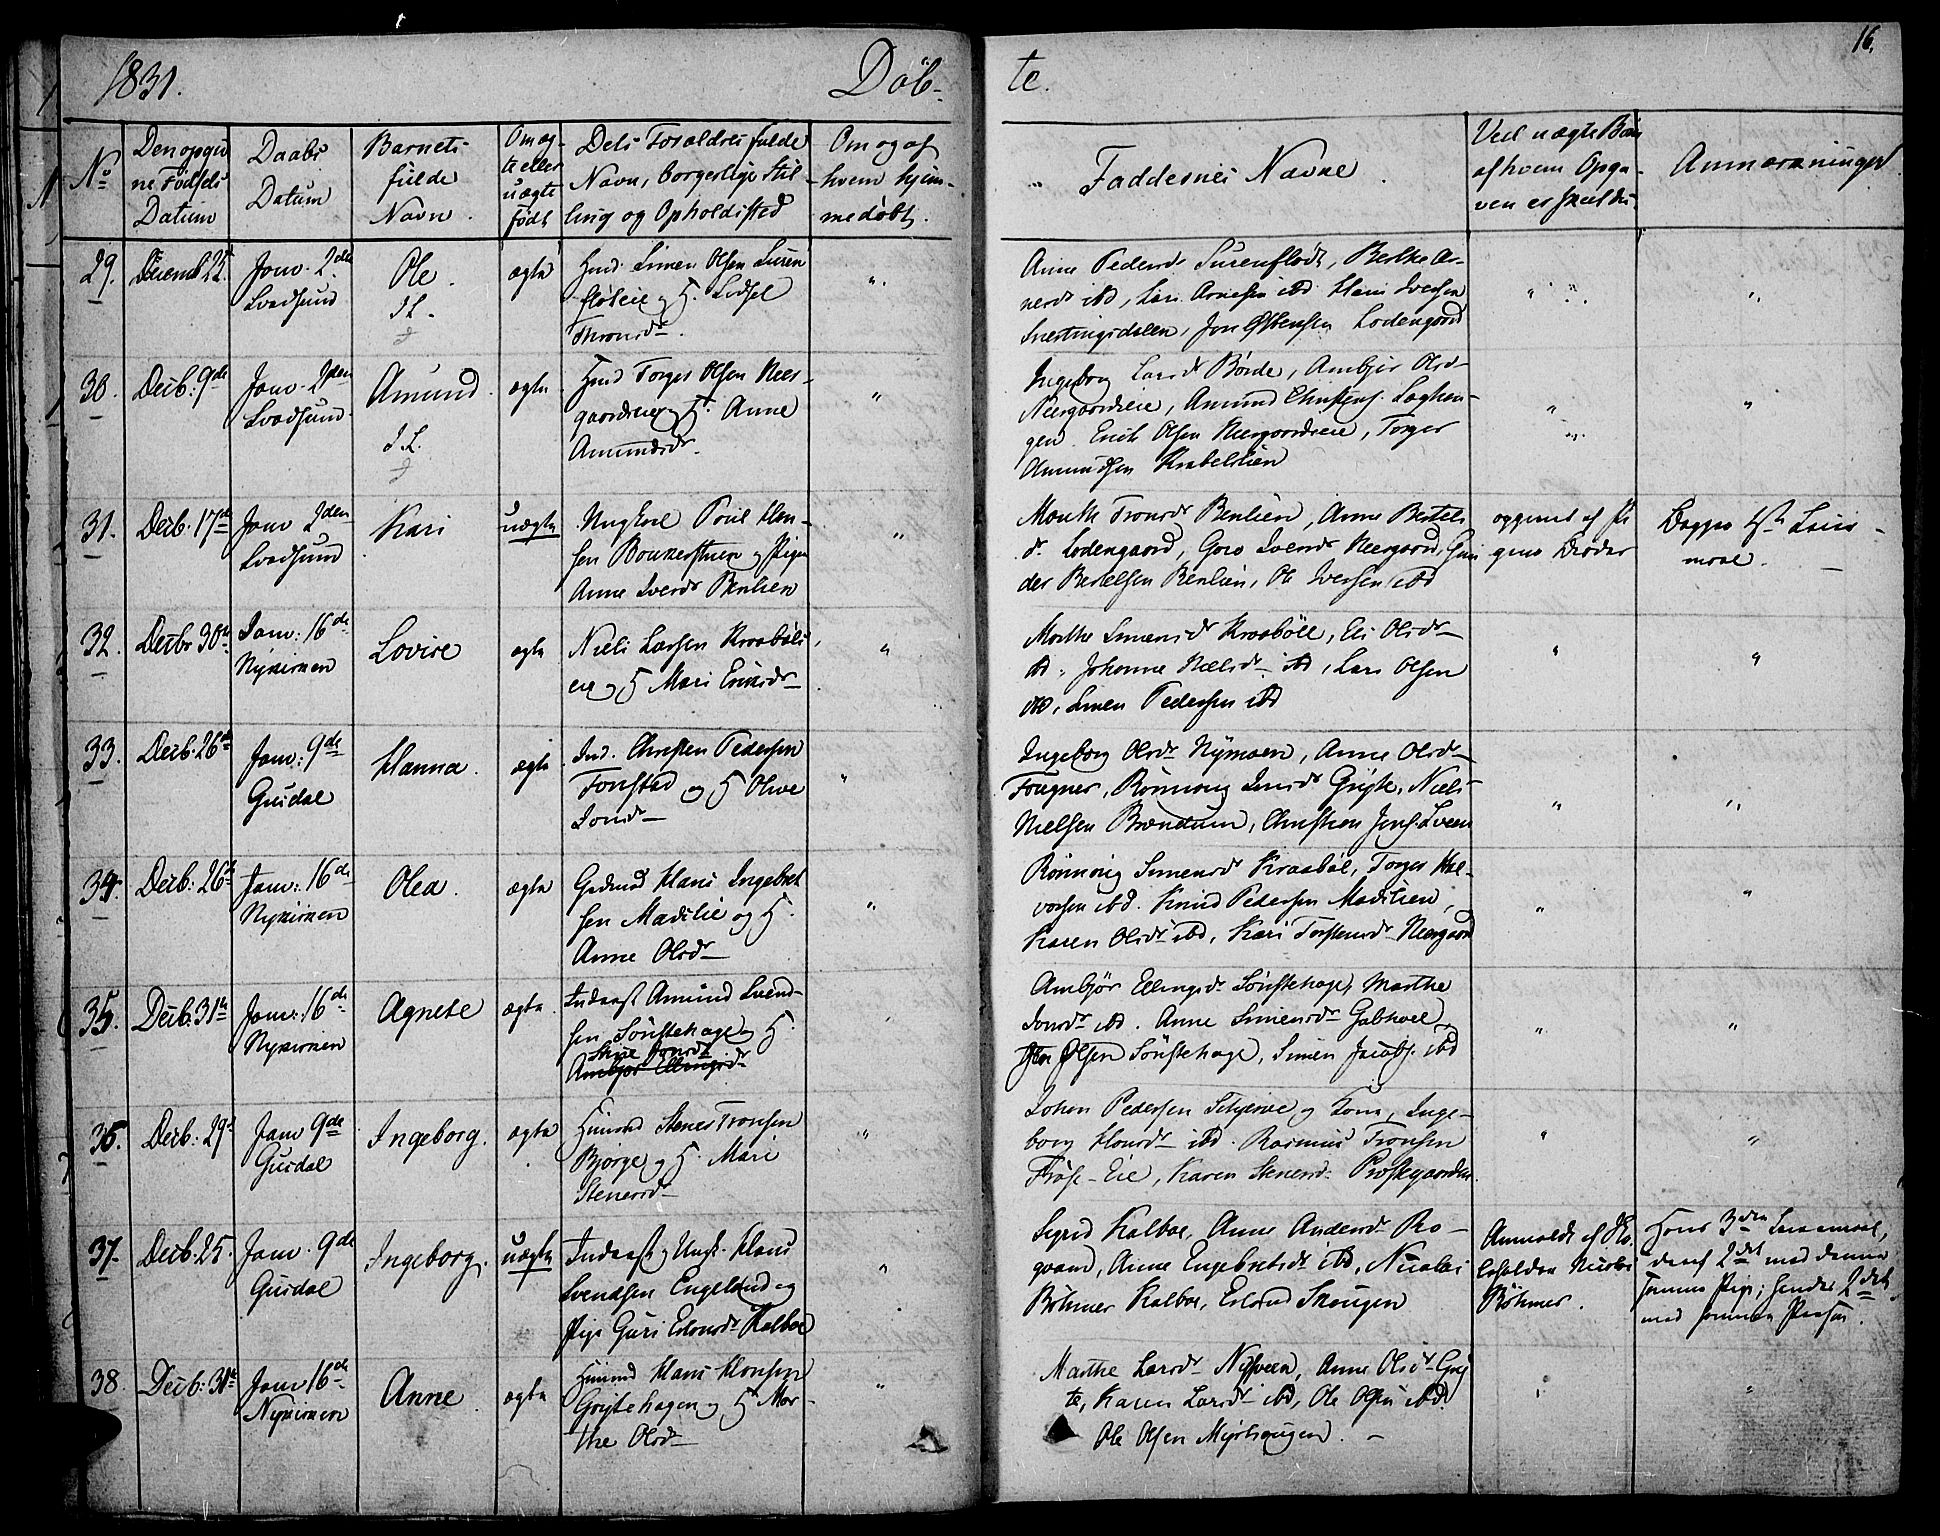 1831.
Döb-
te.
16.
No
Den opgiv
ne Fødsels
Datum
Daabs
Datum
Barnets
fulde
Navn.
Om æg-
te eller
uægte
født
Dets Forældres fulde
Navn, borgerlige Stil-
ling og Opholdssted
Om og af
hvem hjem-
medøbt.
Faddernes Navne.
Ved uægte Børn
af hvem Opga-
ven er skeldt.
Anmærkninger
29.
Decemb 25.
Janv. 2den
Svadsund
Ole.
ægte
Huusd. Simen Olsen Suren
flöteie og H. Sidsel
Thronsdr.
"
Anne Pedersdr Surenflödt, Berthe Ar-
nesdr ibd, Lars Arnesen ibd Hans Iversen
Snertingsdalen, Jon Estensen Lodengaard
30.
Decb. 9de
Janv. 2den
Svadsund
Amund.
ægte
Husd Torger Olsen Neer-
gaardseie og H. Anne
Amundsdr.
"
Ingeborg Larsdr Börde, Ambjör Olsdr
Neergaardseie, Amund Christens. Laghau-
gen. Erich Olsen Neergaardseie, Torger
Amundsen Krabelslien
"
31.
Decb. 17de
Janv 2den
Svadsund
Kari
uægte
Ungkarl Poul Han-
sen Boukerstuen og Pigen
Anne Iversdr Benlien
"
Marthe Tronsdr Benlien, Anne Bertels
dr Lodengaard, Goro Svensdr Neergaard, Gun
der Bertelsen Benlien, Ole Iversen ibd
opgivet af Pi
gens Broder
Begges 1ste Leier-
maal.
32.
Decbr 30te
Janv: 16de
Nykirken
Lovise
ægte
Niels Larsen Kraaböls
eie og H Mari Eriksdr
"
Marthe Simensdr Kraaböll, Eli Olsdr
ibd, Johanne Nielsdr ibd, Lars Olsen
ibd, Simen Pedersen ibd
"
33.
Decb. 26de
Janv: 9de
Gusdal
Hanna.
ægte
Ind. Christen Pedersen
Fonstad og H Olive
Jonsdr
"
Ingeborg Olsdr Nymoen, Anne Olsdr
Fougner, Rönnoug Jensdr Gryte, Niels
Nielsen Brendum, Christian Jens. Sveen
"
34.
Decb: 26de
Janv: 16de
Nykirken
Olea.
ægte
Gadmd Hans Ingebret
sen Maelslie og H.
Anne Olsdr
"
Rönnoug Simensdr Kraaböl, Torger Hal-
vorsen ibd. Knud Pedersen Maelslien,
Karen Olsdr ibd, Kari Torstensdr Neergaard
"
35.
Decb: 31te
Janv: 16de
Nykirken
Agnete
ægte.
Inderst Amund Svend-
sen Sönstehage og H.
Ambjör Ellingsdr
Ambjör Ellingsdr Sönstehage, Marthe
Jonsdr ibd. Anne Simensdr Gobhoel,
Jens Olsen Sönstehage, Simen Jacobs. ibd
"
36.
Decb: 29de
Janv 9de
Gusdal
Ingeborg.
ægte
Huusmd Stener Tronsen
Bjørge og H. Mari
Stenersdr
"
Johan Pedersen Schjerve og Kone, Inge-
borg Hansdr ibd. Rasmus Tronsen
Fröse-Eie, Karen Stenersdr Prestegaarden.
"
37.
Decb. 25.
Janv. 9de
Gusdal
Ingeborg.
uægte
Inderst og Ungk. Hans
Svendsen Engeland og
Pige Guri Erlandsdr Kalboe
"
Sigrid Kalboe, Anne Andersdr Bo-
qvam, Anne Engebretsdr ibd, Nicolai
Böhmer Kalboe, Erland Skougen
Anmeldt af Kir.
Böhmer.
Hans 3die Leiermaal,
deraf 2det med denne
samme Pige; hendes 2det
med samme Person.
38
Decb: 31te
Janv 16de
Nykirken
Anne
ægte
Huusmd Hans Hansen
Grytehagen og H Mar-
the Olsdr
"
Marthe Larsdr Nysveen, Anne Olsdr Gry
te, Karen Larsdr ibd, Ole Olsen ibd.
Ole Olsen Myrhougen.